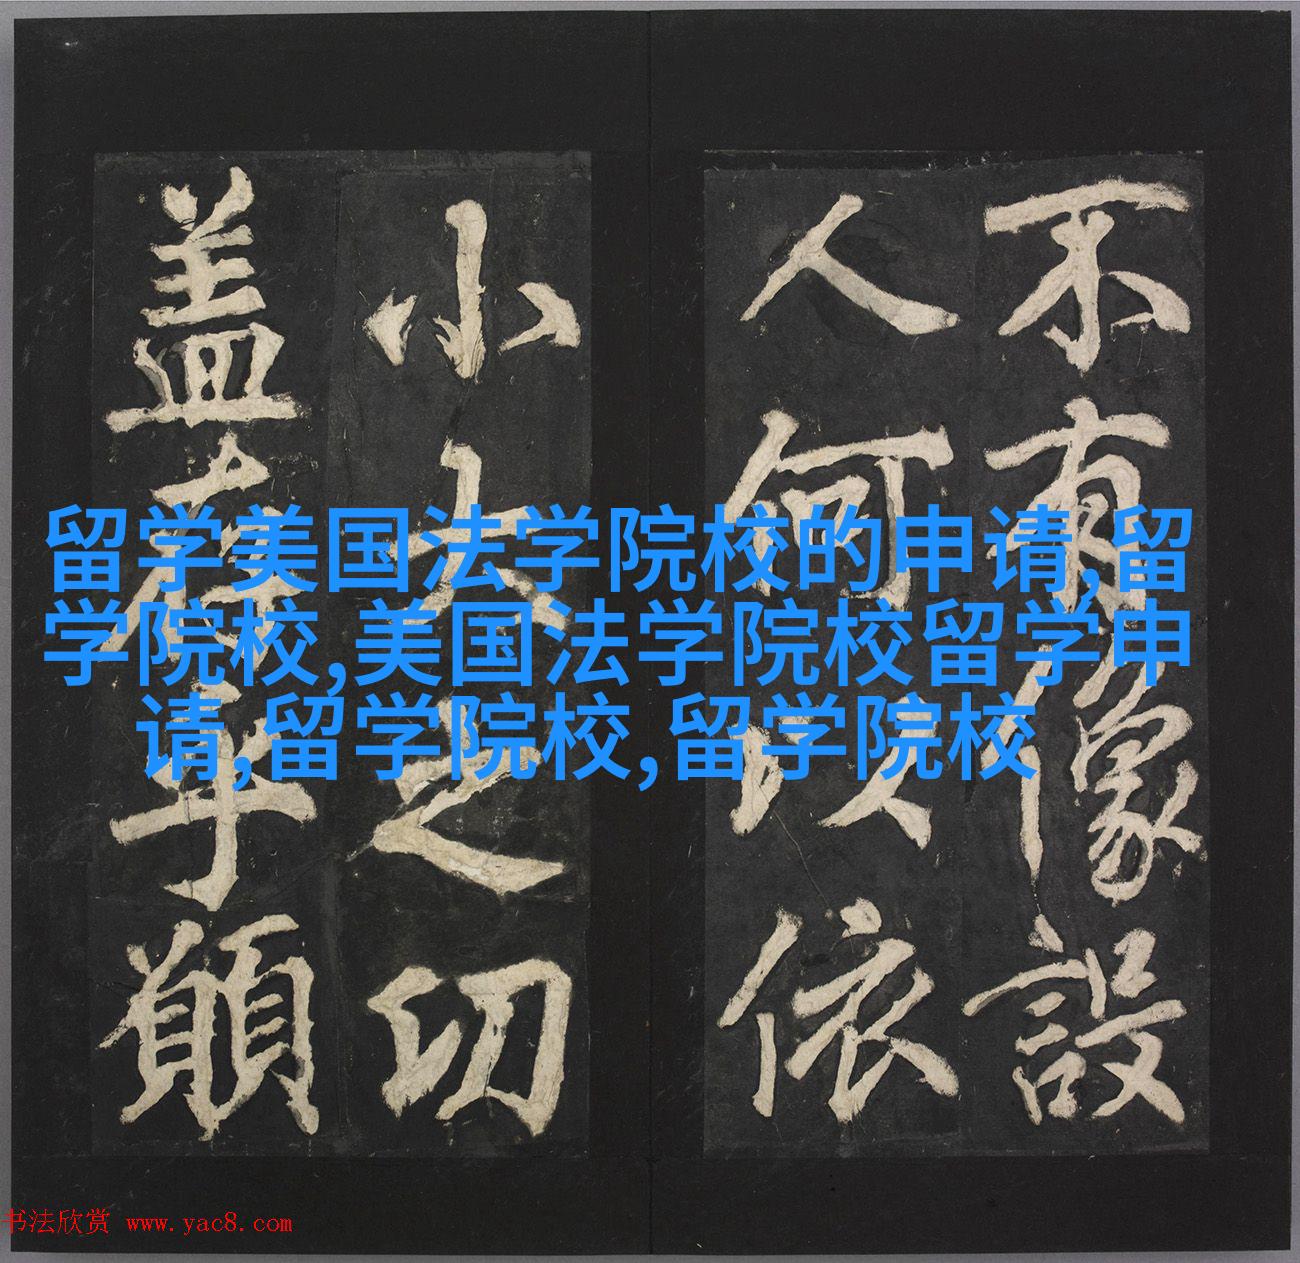 不有像設
人何以依
小大之切
盖存乎願
留学美国法学院校的申请,留
学院校,美国法学院校留学申
请,留学院校,留学院校
书法欣赏 www.yac8.com